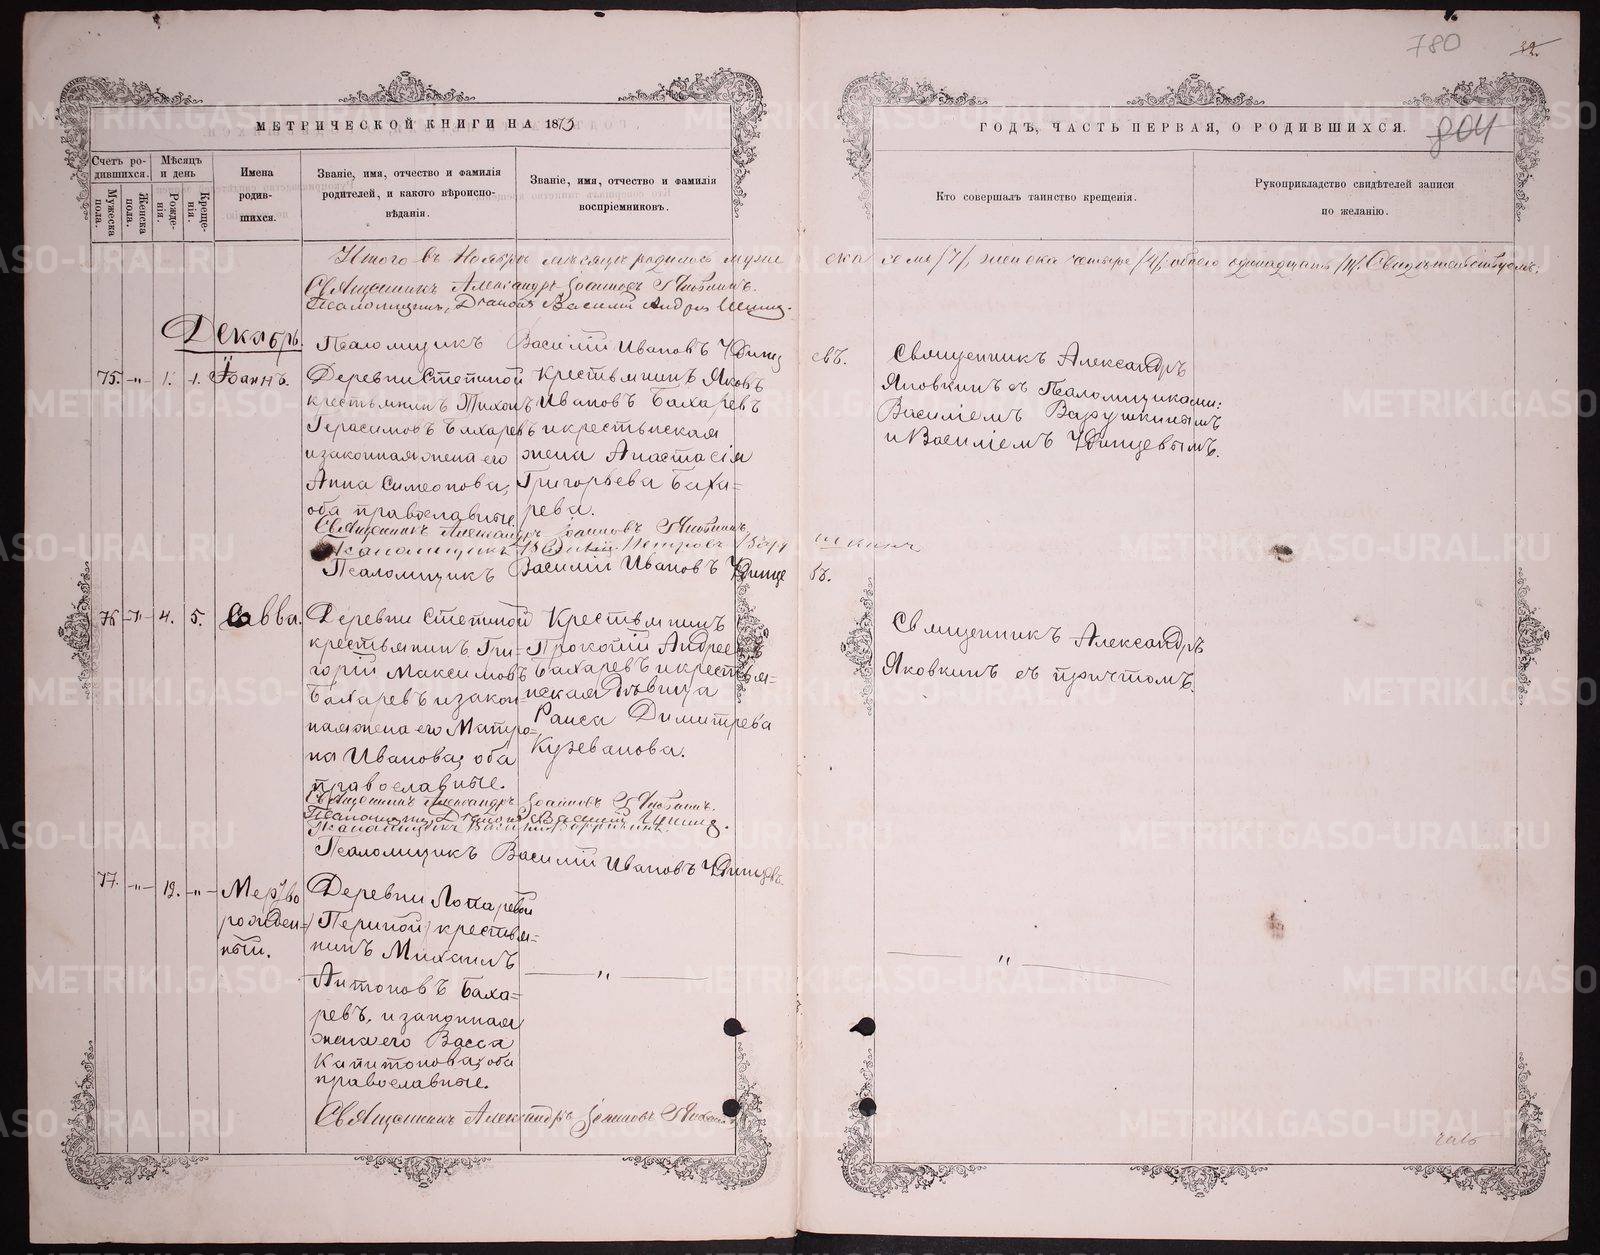 780
32.
804
МЕТРИЧЕСКОЙ КНИГИ НА 1873
ГОДЪ, ЧАСТЬ ПЕРВАЯ, О РОДИВШИХСЯ.
Счетъ ро-
дившихся.
Мужеска
пола.
Женска
пола.
Мѣсяцъ
и день
Рожде-
нія.
Креще-
нія.
Имена
родив-
шихся.
Званіе, имя, отчество и фамилія
родителей, и какого вѣроиспо-
вѣданія.
Званіе, имя, отчество и фамилія
воспріемниковъ.
Кто совершалъ таинство крещенія.
Рукоприкладство свидѣтелей записи
по желанію.
Итого въ Ноябрѣ мѣсяцѣ родилось муже ска семь /7/, женска четыре /4/, обоего одинадцать /11/. Свидѣтельствуемъ:
Священникъ Александръ Іоанновъ
Псаломщикъ, Діаконъ Василій
Декабрь.
Псаломщикъ Василій Ивановъ Уфинц евъ.
75. -"- 1. 1. Іоаннъ.
Деревни Степиной
крестьянинъ Тихонъ
Герасимовъ Бахаревъ
и законная жена его
Анна Симеонова,
оба православные.
Крестьянинъ Яковъ
Ивановъ Бахаревъ
и крестьнская
жена Анастасія
Григорьева Баха=
рева.
Священникъ Александръ
Яковкинъ съ Псаломщиками:
Василіемъ Варушкинымъ
и Василіемъ Уфинцевымъ.
Священникъ Александръ Іоанновъ
Псаломщикъ
Псаломщикъ Василій Ивановъ Уфинце въ.
76 -"- 4. 5. Савва.
Деревни Степиной
крестьянинъ Гри=
горій Максимовъ
Бахаревъ и закон=
ная жена его Матро=
на Иванова, оба
православные.
Крестьянинъ
Прокопій Андрее въ
Бахаревъ и крестья=
нская дѣвица
Раиса Димитрева
Кузеванова.
Священникъ Александръ
Яковкинъ съ причтомъ.
Священникъ Александръ Іоанновъ
Псаломщикъ, Діаконъ Василій
Псаломщикъ
Псаломщикъ Василій Ивановъ Уфинцевъ
77. -"- 12. -"- Мертво
рожден=
ный.
Деревни Лопаревой
/Періной/ крестья=
нинъ Михаилъ
Антоновъ Баха=
ревъ, и законная
жена его Васса
Капитонова, оба
православные.
"
"
Священникъ Александръ Іоанновъ
METRIKI.GASO-URAL.RU